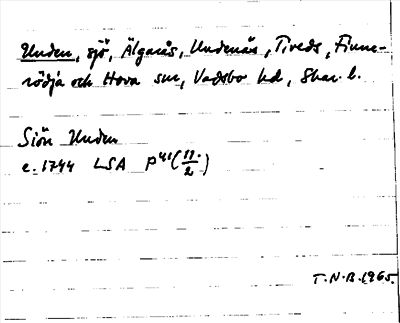 Unden, sjö, Älgarås, Undenäs, Tiveds, Finne-
rödja och Hova snr, Vadsbo hd, Skar. l.
Siön Unden
c. 1744 LSA P 41 (11/2)
T.N.B. 1965.